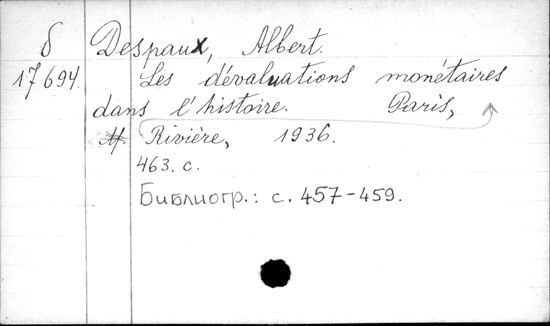 б Despaux, Albert.
17694 Les dévaluations monétaires
dans l'histoire. Paris,
M. Rivière, 1936.
463 с.
Библиогр.: с. 457-459.